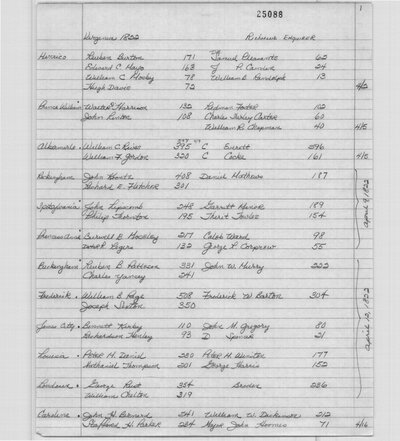 25088
1
Virginia 1822 Richmond Enquirer
Henrico Reuben Burton 171 Samuel Pleasants 62
Edward C. Mayo 163 J P 24
William C. 78 William B Randolph 13
Hugh Davis 72 4/2
Prince William Walter Harrison 132 Redman Foster 102
John 108 Charles Carter 60
William R. Chapman 40 4/5
Albemarle William C. Rives 395 C Everett 596
William F. Gordon 320 C Cocke 161 4/5
Rockingham John Koontz 408 Daniel Mathews 187
Richard E. Fletcher 301
Spotsylvania John Lipscomb 248 Garritt Minor 189
Philip Thornton 195 Thrift Towles 154
April 9, 1822
Princess Anne Burwell B Moseley 217 Caleb Ward 98
Rogers 122 George P. Corprew 55
Buckingham Reuben B Patteson 331 John W. 222
Charles Yancey 241
Frederick William B Page 508 Frederick W Barton 304
Joseph 350
James City Bennett Kirby 110 John M. Gregory 80
Richardson Henley 93 D Spraik 21
April 12, 1822
Louisa Peter H. Daniel 220 Peter H. 177
Nathaniel Thompson 201 George Harris 152
Loudoun George Rust 354 226
William Chilton 319
Caroline John H. Bernard 241 William W. Dickinson 212
Stafford H. Parker 234 Major John Hoomes 71 4/16